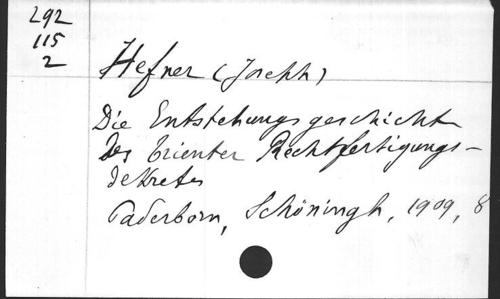 292
115
2
Hefner (Joseph)
Die Entstehungsgeschichte
des trienter Rechtfertigungs-
dekretes
Paderborn, Schöningh, 1909, 8